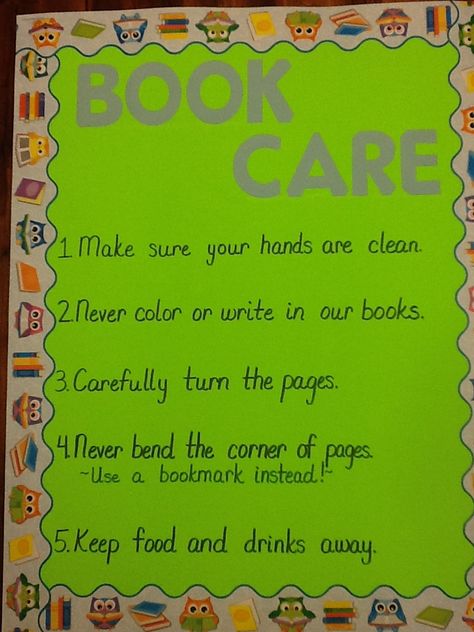 BOOK
CARE
1. Make sure your hands are clean.
2. Never color or write in our books.
3. Carefully turn the pages.
4. Never bend the corner of pages.
~Use a bookmark instead!~
5. Keep food and drinks away.